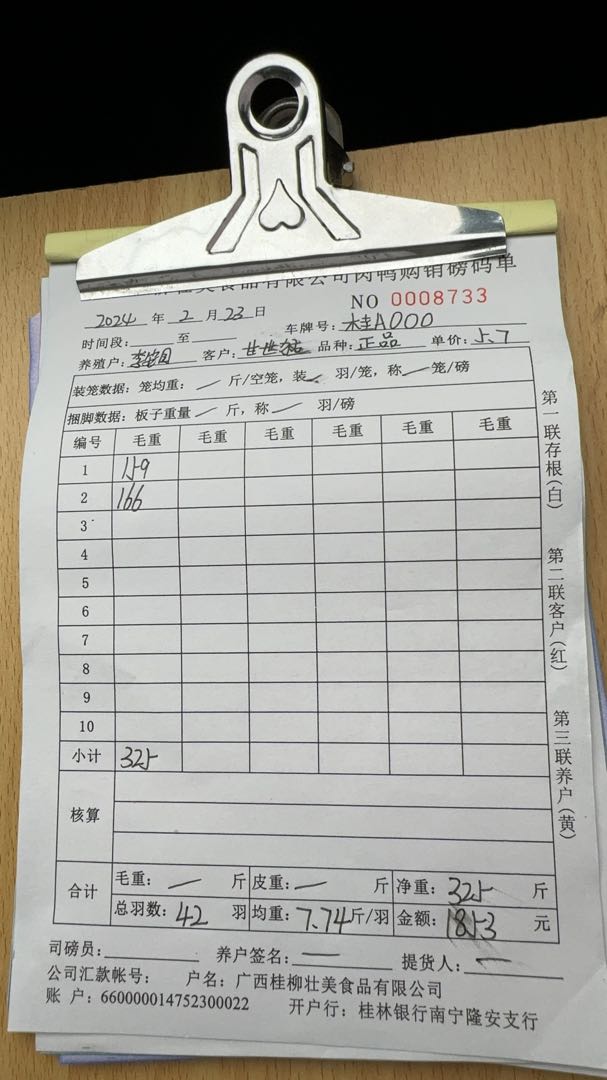 壮美食品有限公司肉鸭购销磅码单
NO 0008733
2024 年 2 月 23 日
时间段: 至 车牌号: 桂A000
养殖户: 客户: 品种: 正品 单价: 5.7
装笼数据: 笼均重: — 斤/空笼, 装 — 羽/笼, 称 — 笼/磅
捆脚数据: 板子重量 — 斤, 称 — 羽/磅
编号 毛重 毛重 毛重 毛重 毛重 毛重
1 159
2 166
3
4
5
6
7
8
9
10
小计 325
核算
合计 毛重: — 斤 皮重: — 斤 净重: 325 斤
总羽数: 42 羽 均重: 7.74 斤/羽 金额: 1853 元
司磅员: 养户签名: — 提货人: —
公司汇款帐号: 户名: 广西桂柳壮美食品有限公司
账 户: 660000014752300022 开户行: 桂林银行南宁隆安支行
第一联存根(白)
第二联客户(红)
第三联养户(黄)